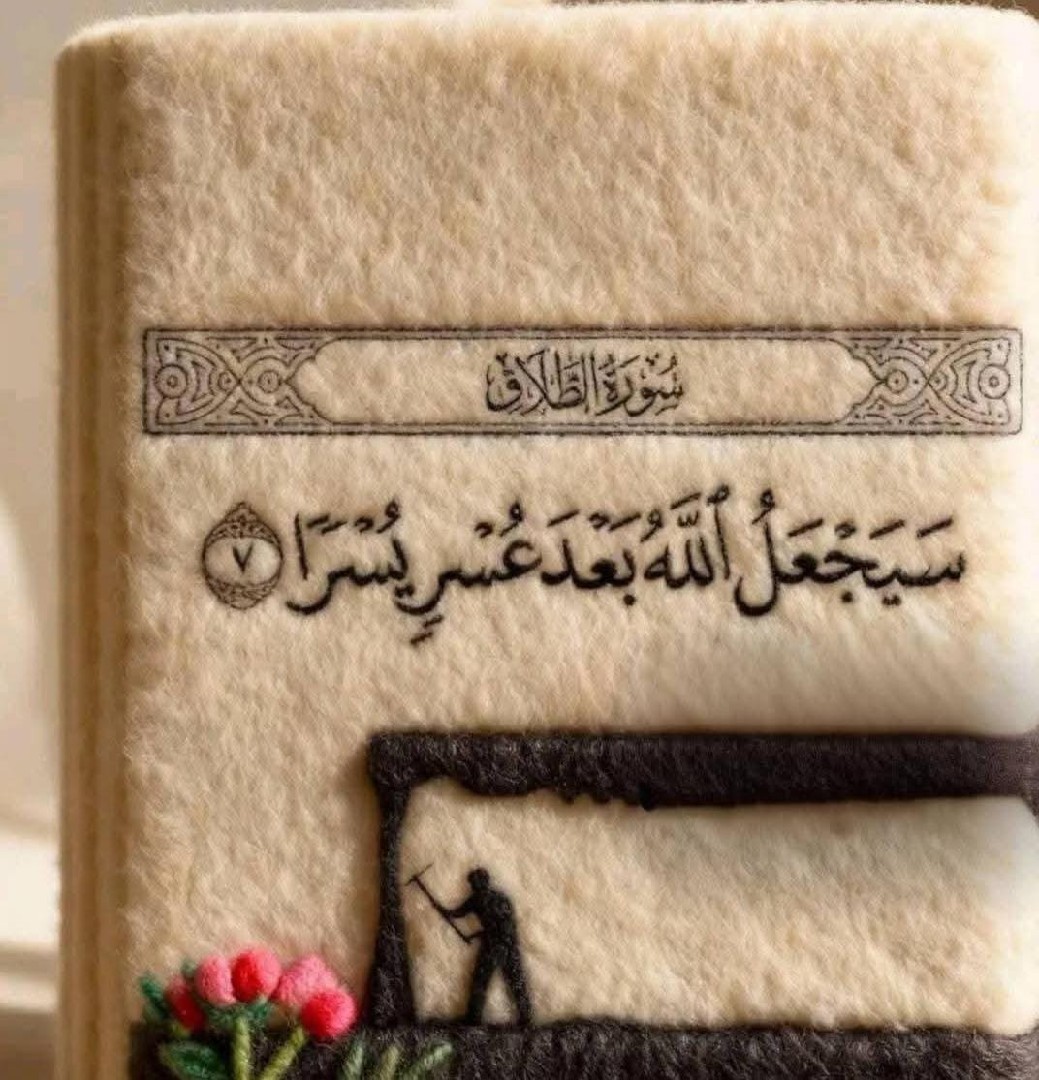 سُورَةُ الطَّلَاقِ
سَيَجْعَلُ ٱللَّهُ بَعْدَ عُسْرٍ يُسْرًا ٧